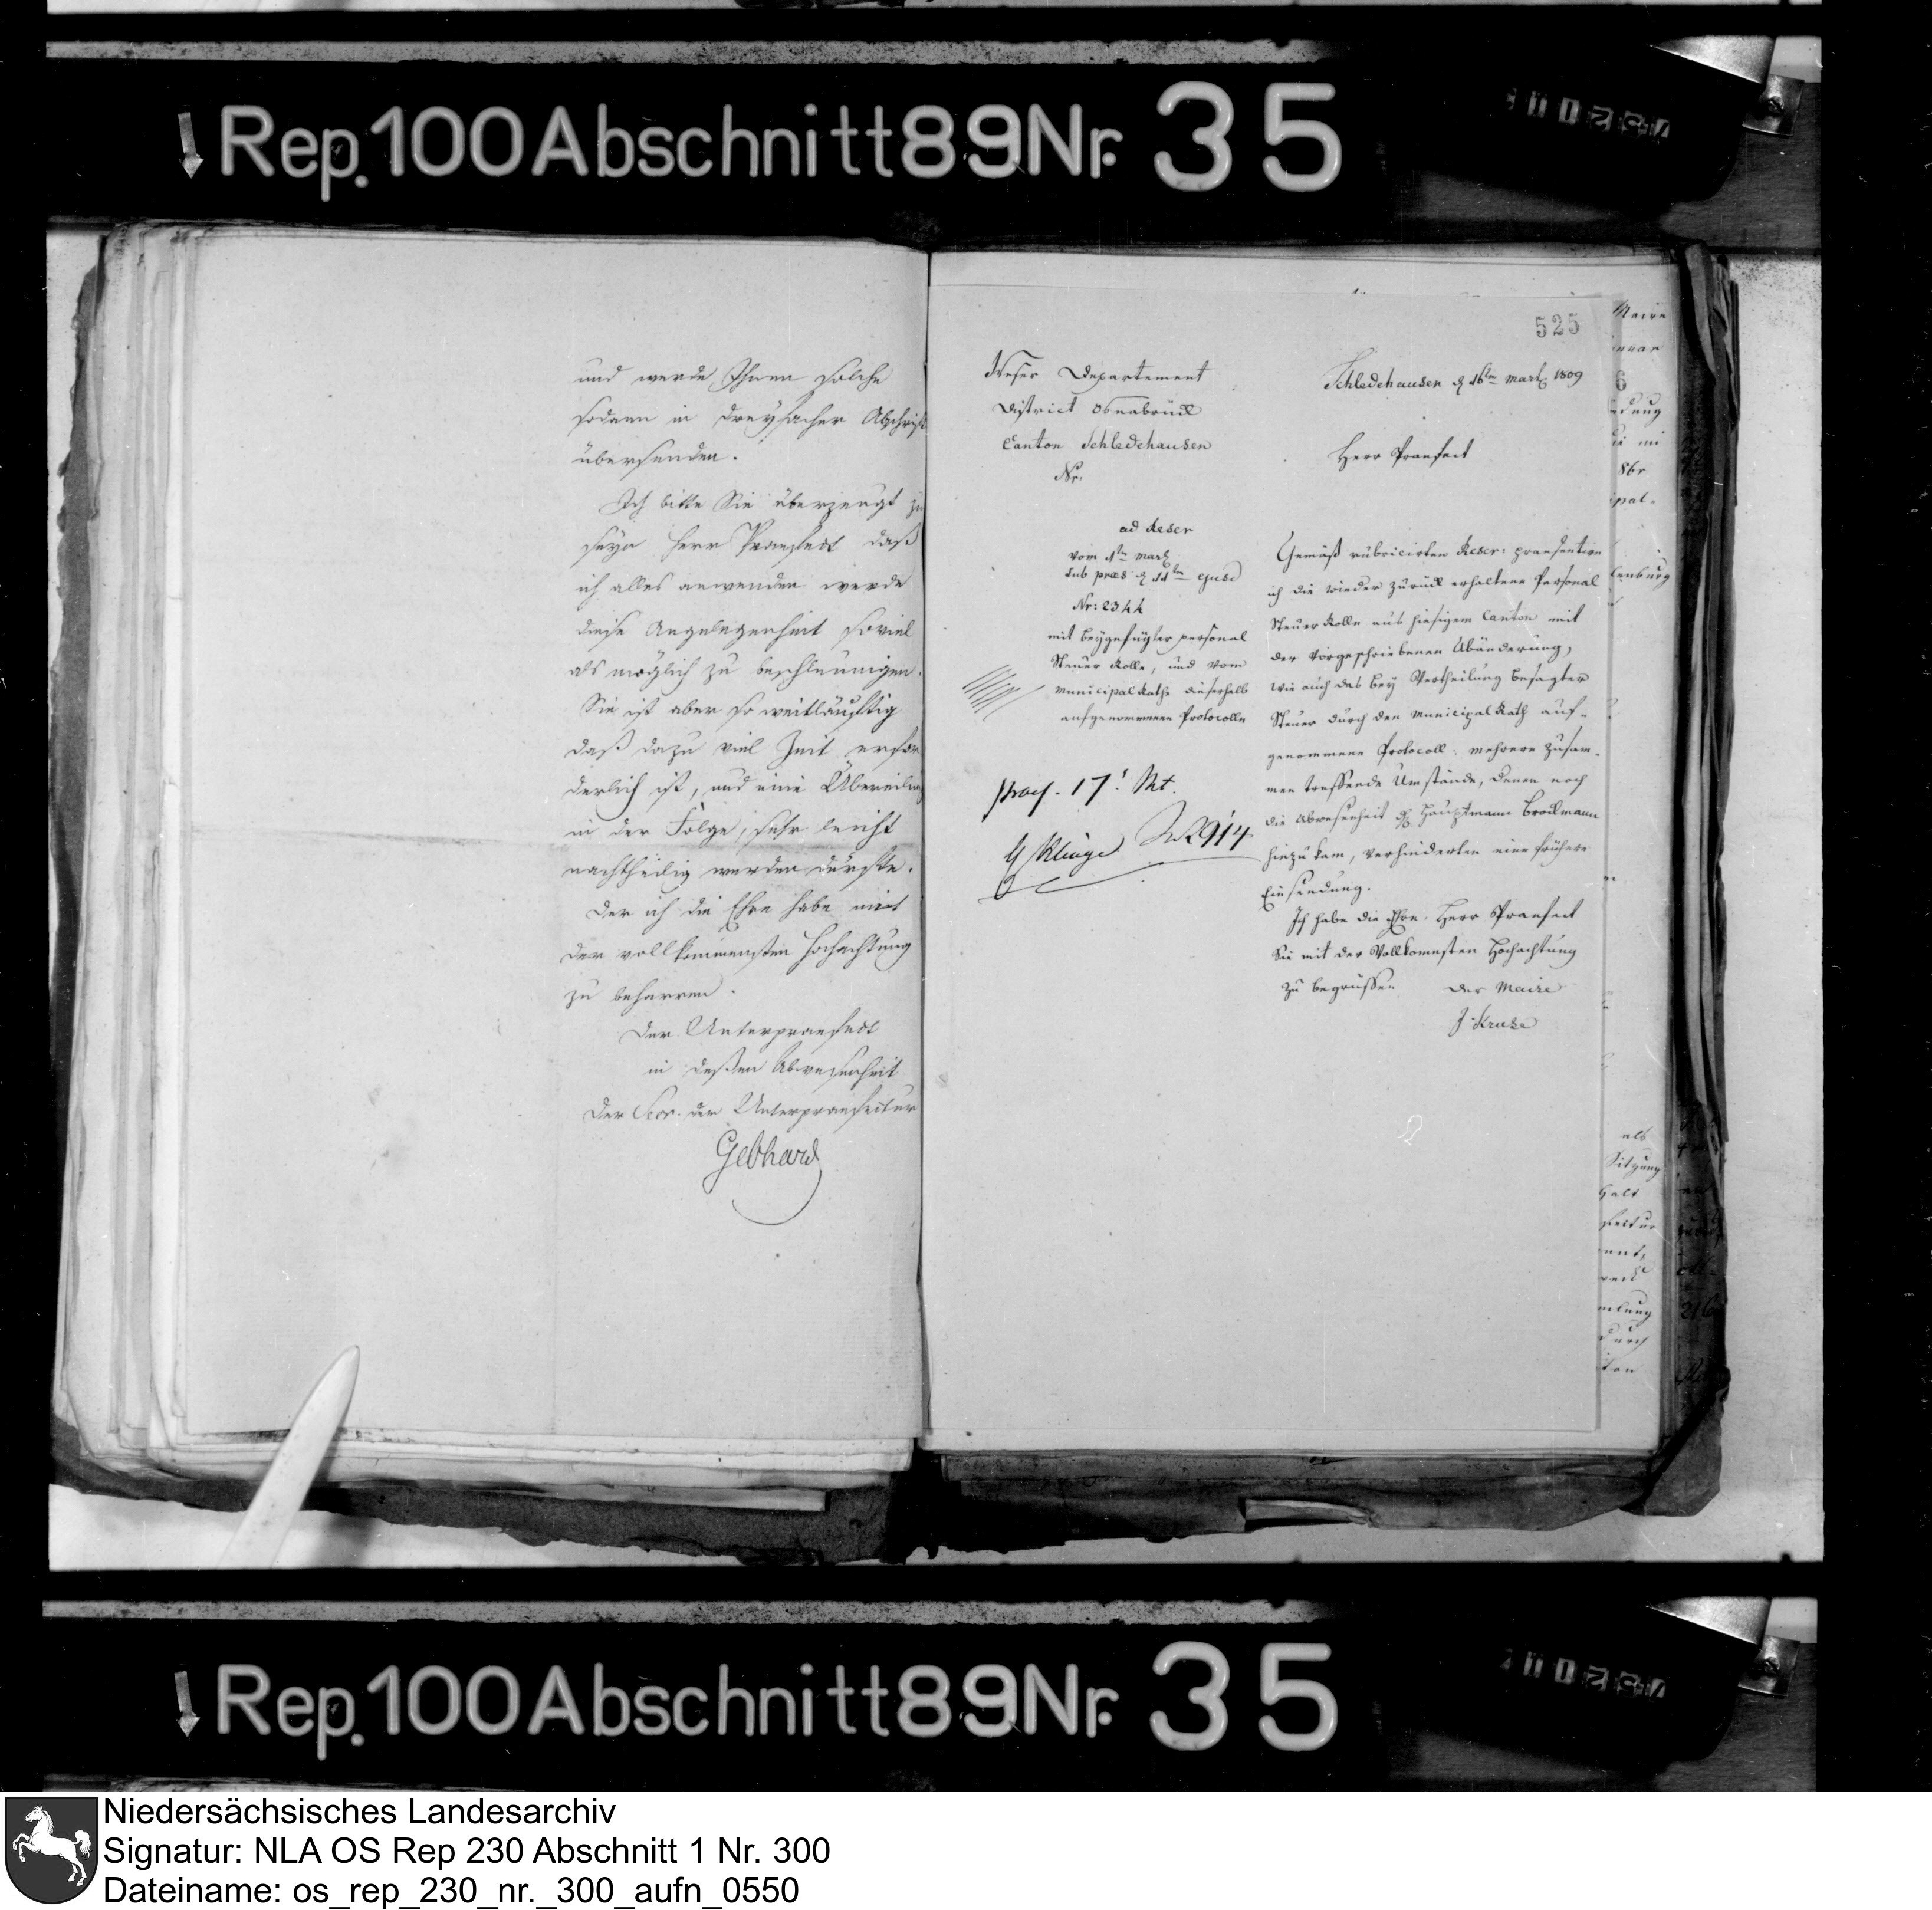 Rep.100Abschnitt89Nr. 35
und werde Ihnen solche
sodann in dreyfacher Abschrift
übersenden.
Ich bitte Sie überzeugt zu
seyn Herr Praefect daß
ich alles anwenden werde
diese Angelegenheit soviel
als möglich zu beschleunigen.
Sie ist aber so weitläuftig
daß dazu viel Zeit erfor
derlich ist, und eine Übereilung
in der Folge, sehr leicht
nachtheilig werden dürfte.
Der ich die Ehre habe mit
der vollkommensten Hochachtung
zu beharren.
Der Unterpraefect
in deßen Abwesenheit
Der Secr. der Unterpraefectur
Gebhard
525
Weser Departement
District Osnabrück
Canton Schledehausen
Nr.
Schledehausen d 16ten Martz 1809
Herr Praefect
ad Reser
vom 1ten Martz
sub praes d 11ten ejusd
Nr: 2344
mit beygefügter personal
Steuer Rolle, und vom
Municipal Rathe dieserhalb
aufgenommenen Protocolle
praes. 17t. Mt.
Nr 2914
Gemäß rubricirten Reser: praesentire
ich die wieder zurück erhaltene Personal
Steuer Rolle aus hiesigem Canton mit
der vorgeschriebenen Abänderung,
wie auch das bey Vertheilung besagter
Steuer durch den Municipal Rath auf-
genommene Protocoll: mehrere zusam-
men treffende Umstände, denen noch
die Abwesenheit des Hauptmann Brockmann
hinzu kam, verhinderten eine frühere
Einsendung.
Ich habe die Ehre Herr Praefect
Sie mit der Vollkomesten Hochachtung
zu begrüssen der Maire
J Kruse
Rep.100Abschnitt89Nr. 35
Niedersächsisches Landesarchiv
Signatur: NLA OS Rep 230 Abschnitt 1 Nr. 300
Dateiname: os_rep_230_nr._300_aufn_0550